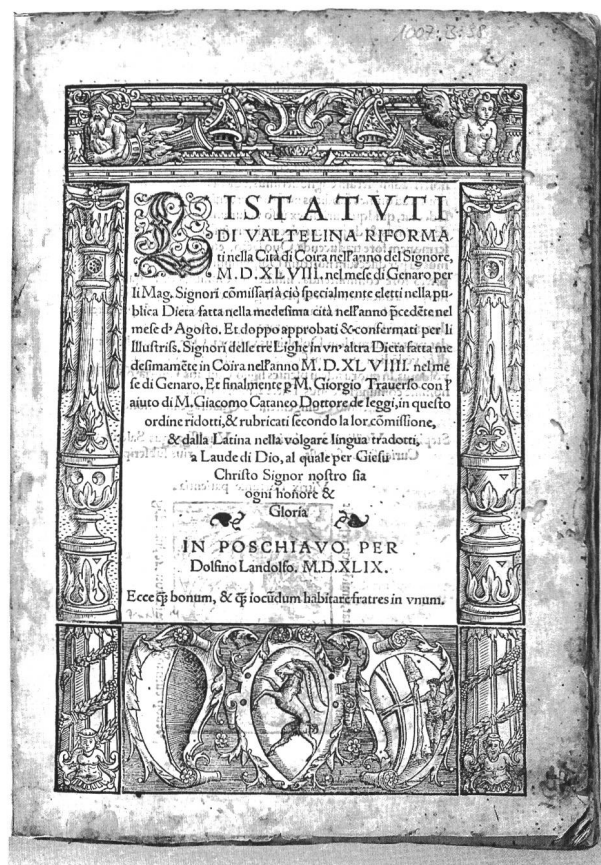 1007.B.38
LI STATVTI
DI VALTELINA RIFORMA-
ti nella Cità di Coira nell'anno del Signore,
M.D.XLVIII. nel mese di Genaro per
li Mag. Signori cõmissari à ciò specialmente eletti nella pu-
blica Dieta fatta nella medesima cità nell'anno p̃cedẽte nel
mese d' Agosto. Et doppo approbati & confermati per li
Illustriss. Signori delle tre Lighe in vn' altra Dieta fatta me
desimamẽte in Coira nell'anno M.D.XLVIIII. nel me
se di Genaro. Et finalmente p M. Giorgio Trauerso con l'
aiuto di M. Giacomo Cataneo Dottore de leggi, in questo
ordine ridotti, & rubricati secondo la lor cõmissione,
& dalla Latina nella volgare lingua tradotti,
a Laude di Dio, al quale per Giesu
Christo Signor nostro sia
ogni honore &
Gloria
IN POSCHIAVO PER
Dolfino Landolfo. M.D.XLIX.
Ecce q̃ bonum, & q̃ iocũdum habitare fratres in vnum.